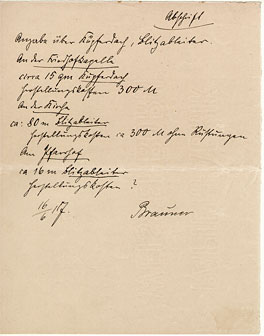 Abschrift
Angabe über Kupferdach, Blitzableiter
An der Friedhofkapelle
circa 15 qm Kupferdach
Herstellungskosten 300 M
An der Kirche
ca: 80 m Blitzableiter
Herstellungskosten ca 300 M ohne Rüstungen
Am Pfarrhof
ca 16 m Blitzableiter
Herstellungskosten ?
16/6 17. Brauner